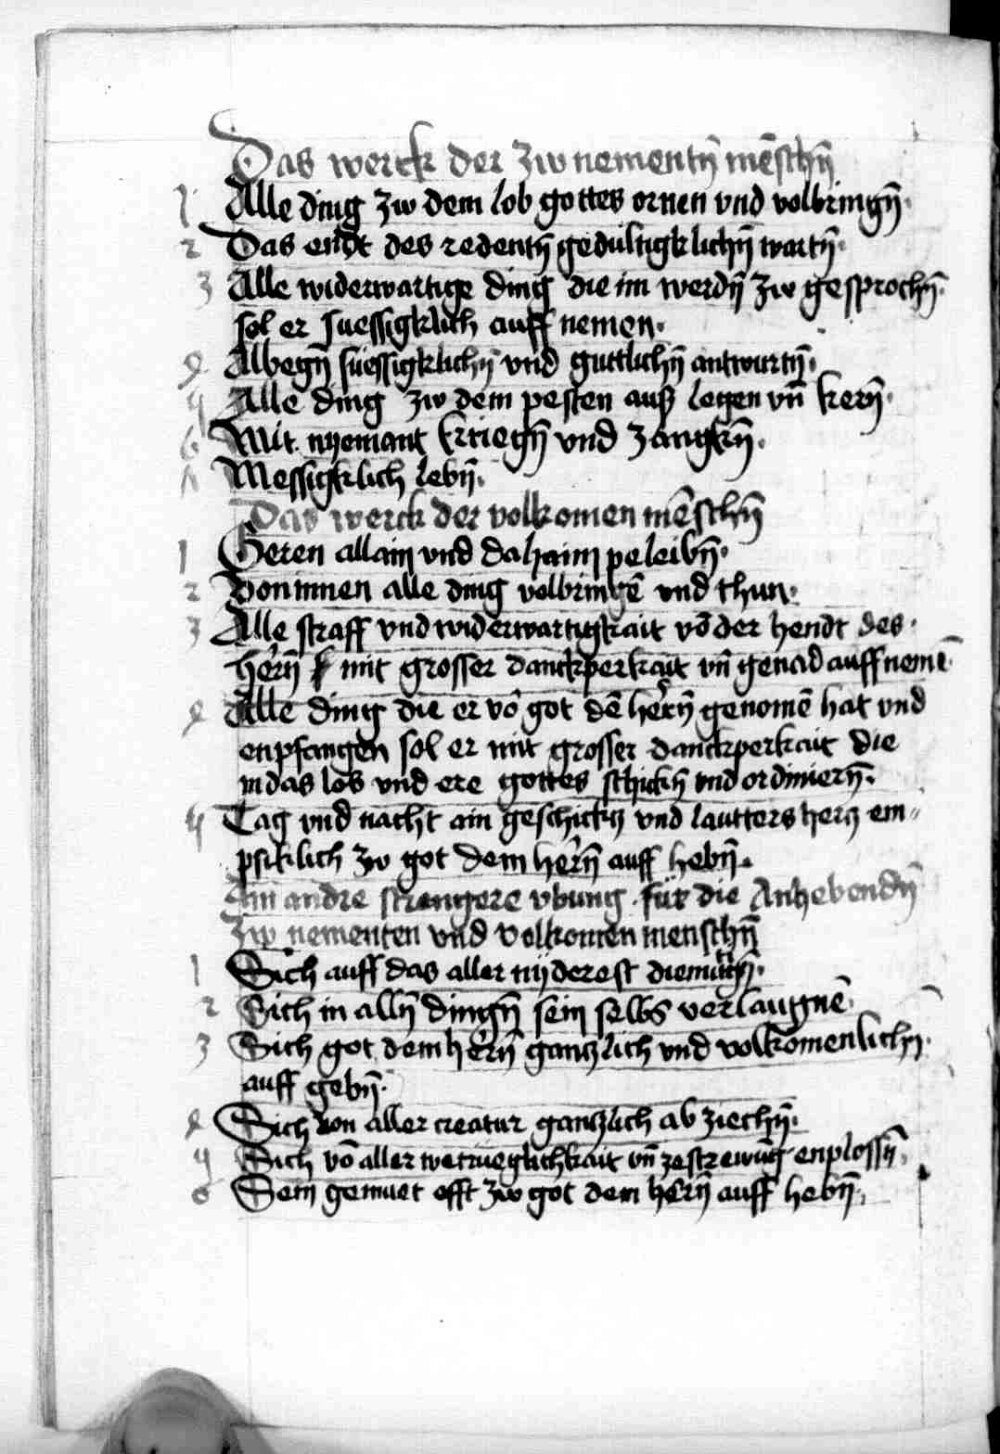 Das werck der zw nementn̄ mēschn̄
1 Alle ding zw dem lob gottes ornen vnd volbringn̄.
2 Das endt des redentn̄ gedultigklichn̄ wartn̄.
3 Alle widerwartige ding die im werdn̄ zw gesprochn̄.
sol er suessigklich auff nemen.
4 Albegn̄ suessigklichn̄ vnd guttlichn̄ antwurtn̄.
5 Alle ding zw dem pesten auß legen vn̄ kern̄.
6 Mit nyemant kriegn̄ vnd zangkn̄.
7 Messigklich lebn̄.
Das werck der volkomen mēschn̄
1 Geren allain vnd dahaim peleibn̄.
2 Von innen alle ding volbringē vnd thun.
3 Alle straff vnd widerwartigkait vō der hendt des
hern̄ mit grosser danckperkait vn̄ genad auff nemē
4 Alle ding die er vō got dē hern̄ genomē hat vnd
enpfangen sol er mit grosser danckperkait die
in das lob vnd ere gottes schickn̄ vnd ordiniern̄.
5 Tag vnd nacht ain geschickcz vnd lautters hercz em-
psiklich zw got dem hern̄ auff hebn̄.
Ain andre strengere vbung für die Anhebendn̄
Zw nementen vnd volkomen menschn̄
1 Sich auff das aller nyderest diemutign̄.
2 Sich in alln̄ dingn̄ sein selbs verlaugnē
3 Sich got dem hern̄ ganczlich vnd volkomenlichn̄
auff gebn̄.
4 Sich von aller creatur ganczlich ab ziechn̄.
5 Sich vō aller betrueglichkait vn̄ zestrewūg enplossn̄.
6 Sein gemuet offt zw got dem hern̄ auff hebn̄.